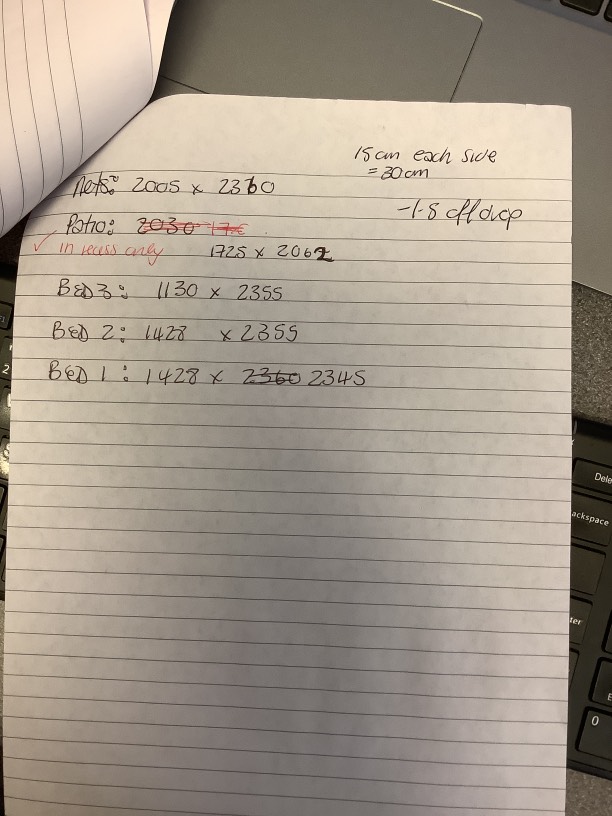 15cm each side
= 30cm
-1.5 off drop
Nets: 2005 x 2360
Patio: 2030
✓ in recess only 1725 x 2062
BED 3: 1130 x 2355
BED 2: 1428 x 2355
BED 1: 1428 x 2360 2345
Dele
ackspace
ter
0